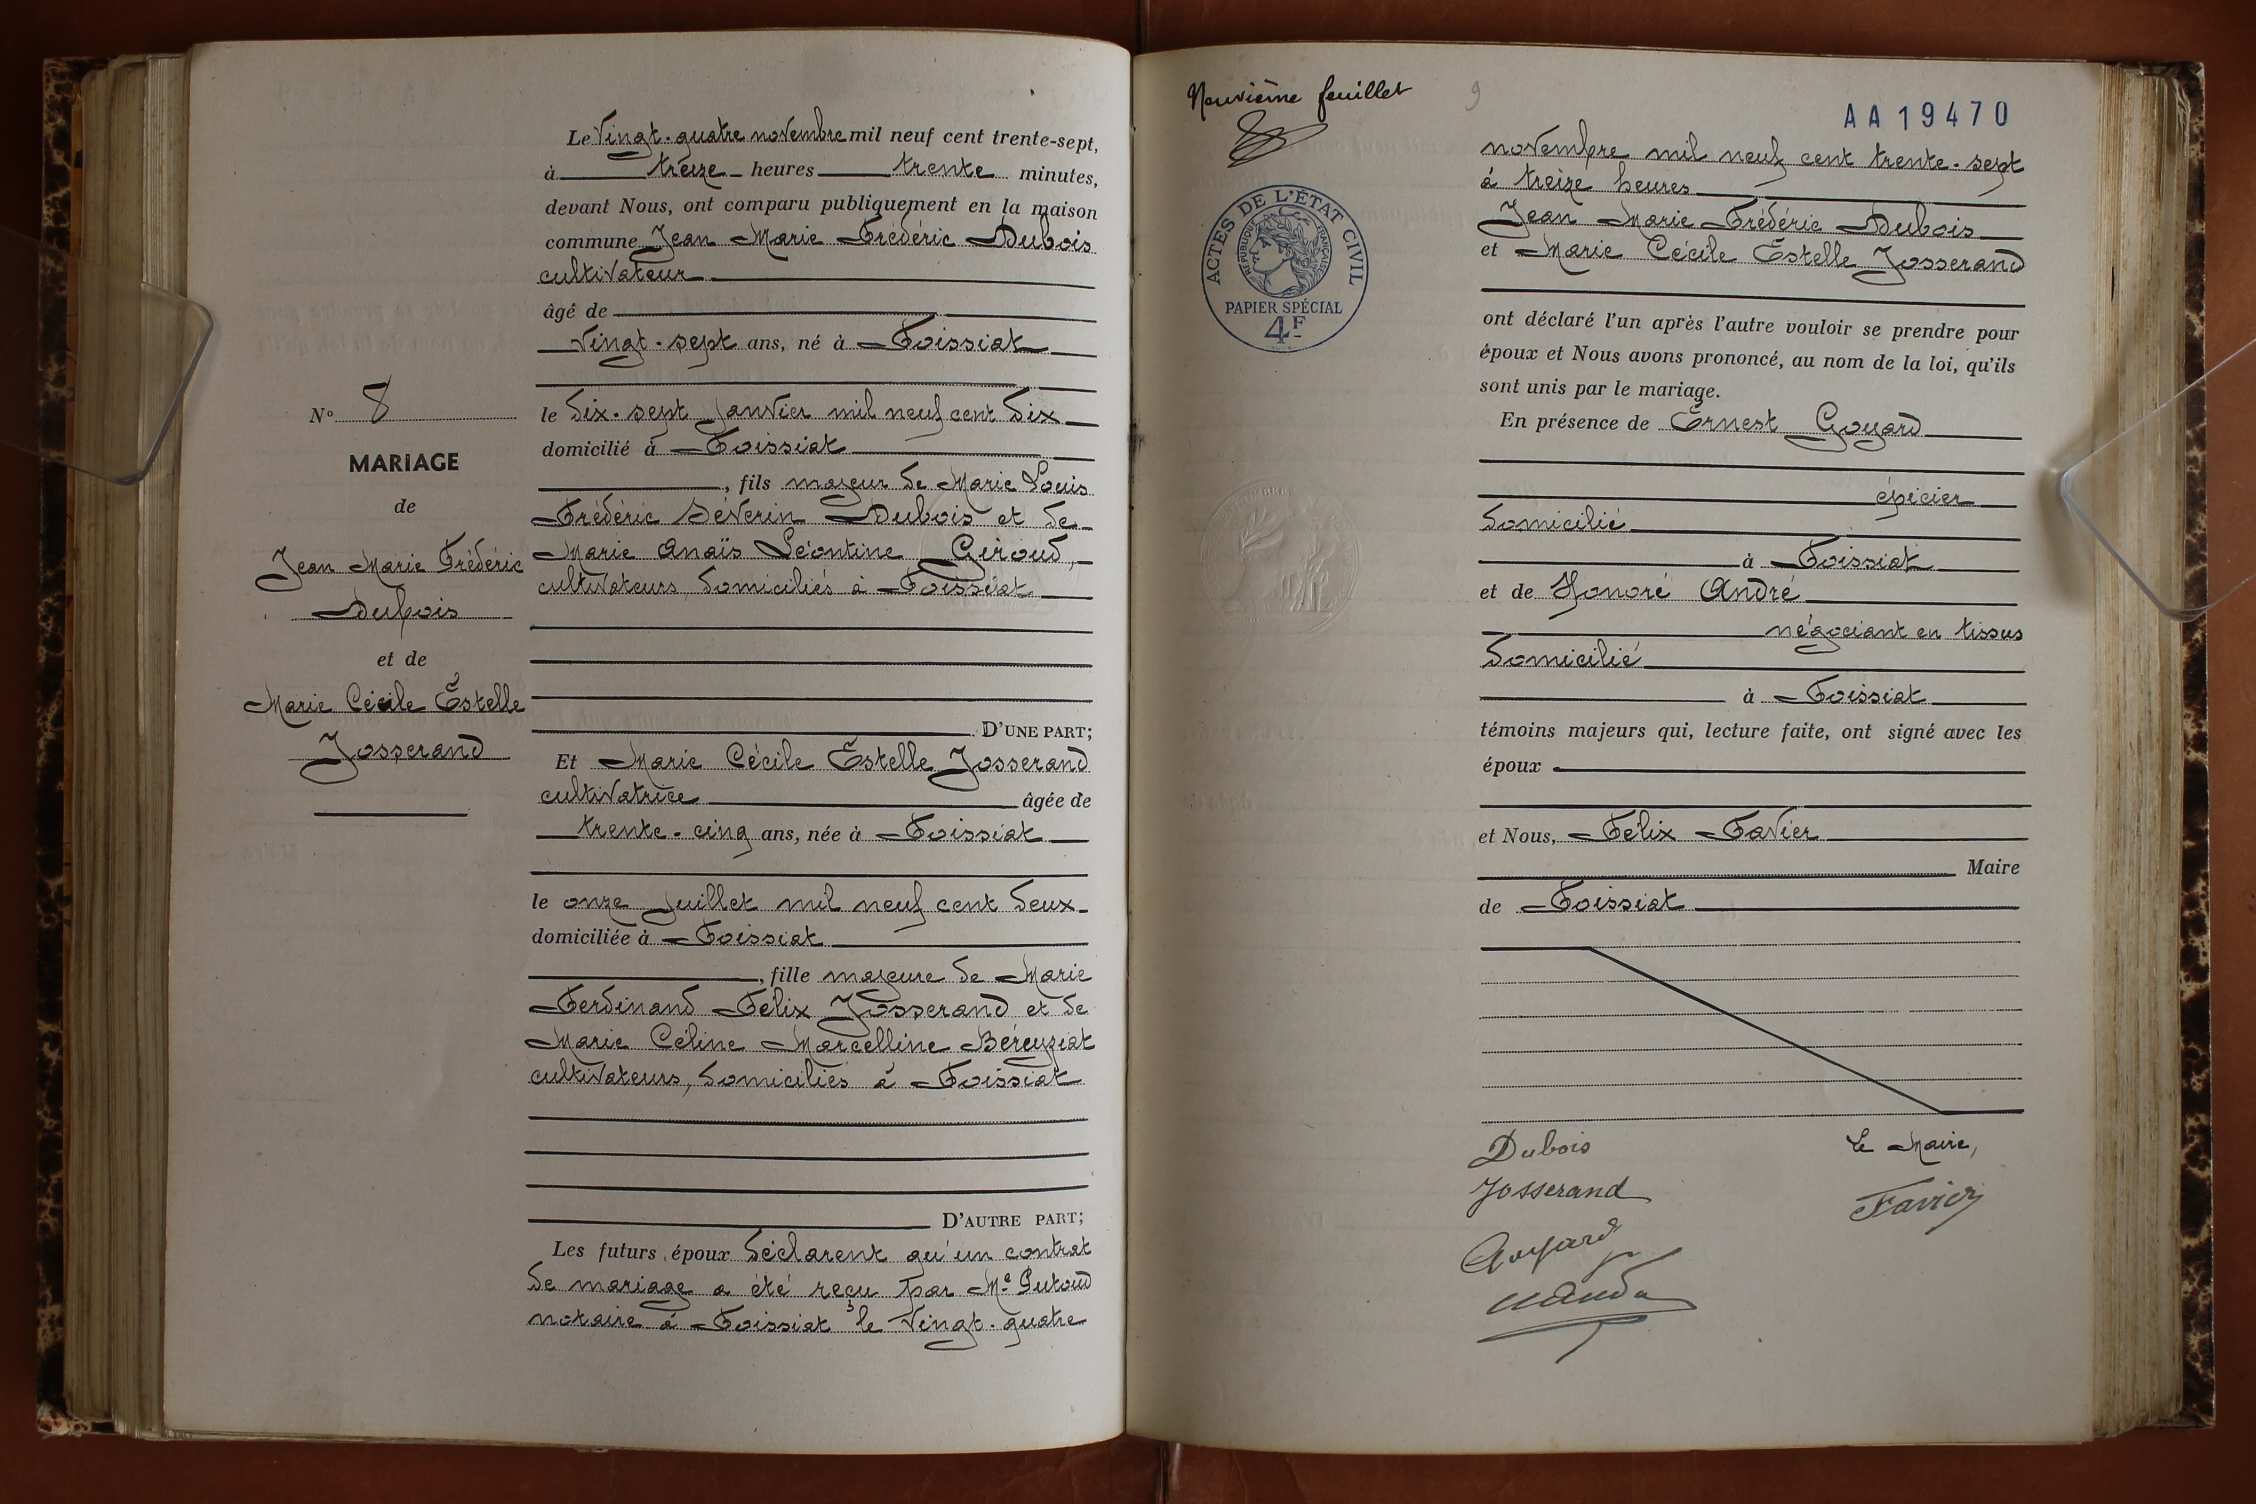 Le Vingt-quatre novembre mil neuf cent trente-sept,
à treize heures trente minutes,
devant Nous, ont comparu publiquement en la maison
commune Jean Marie Frédéric Dubois
cultivateur
âgé de
vingt-sept ans, né à Foissiat
le dix-sept Janvier mil neuf cent dix
domicilié à Foissiat
, fils majeur de Marie Louis
Frédéric Séverin Dubois et de
Marie Anaïs Léontine Giroud,
cultivateurs, domiciliés à Foissiat
D'UNE PART;
Et Marie Cécile Estelle Josserand
cultivatrice âgée de
trente-cinq ans, née à Foissiat
le onze Juillet mil neuf cent deux
domiciliée à Foissiat
, fille majeure de Marie
Ferdinand Félix Josserand et de
Marie Céline Marcelline Béreyziat
cultivateurs, domiciliés à Foissiat
D'AUTRE PART;
Les futurs époux déclarent qu'un contrat
de mariage a été reçu par Me Putoud
notaire à Foissiat le vingt-quatre
N° 8
MARIAGE
de
Jean Marie Frédéric
Dubois
et de
Marie Cécile Estelle
Josserand
Neuvième feuillet
9
AA19470
ACTES DE L'ÉTAT CIVIL
RÉPUBLIQUE FRANÇAISE
PAPIER SPÉCIAL
4F
novembre mil neuf cent trente-sept
à treize heures
Jean Marie Frédéric Dubois
et Marie Cécile Estelle Josserand
ont déclaré l'un après l'autre vouloir se prendre pour
époux et Nous avons prononcé, au nom de la loi, qu'ils
sont unis par le mariage.
En présence de Ernest Goyard
épicier
domicilié
à Foissiat
et de Honoré André
négociant en tissus
domicilié
à Foissiat
témoins majeurs qui, lecture faite, ont signé avec les
époux
et Nous, Félix Favier
Maire
de Foissiat
Dubois
Josserand
Goyard
Le Maire,
Favier